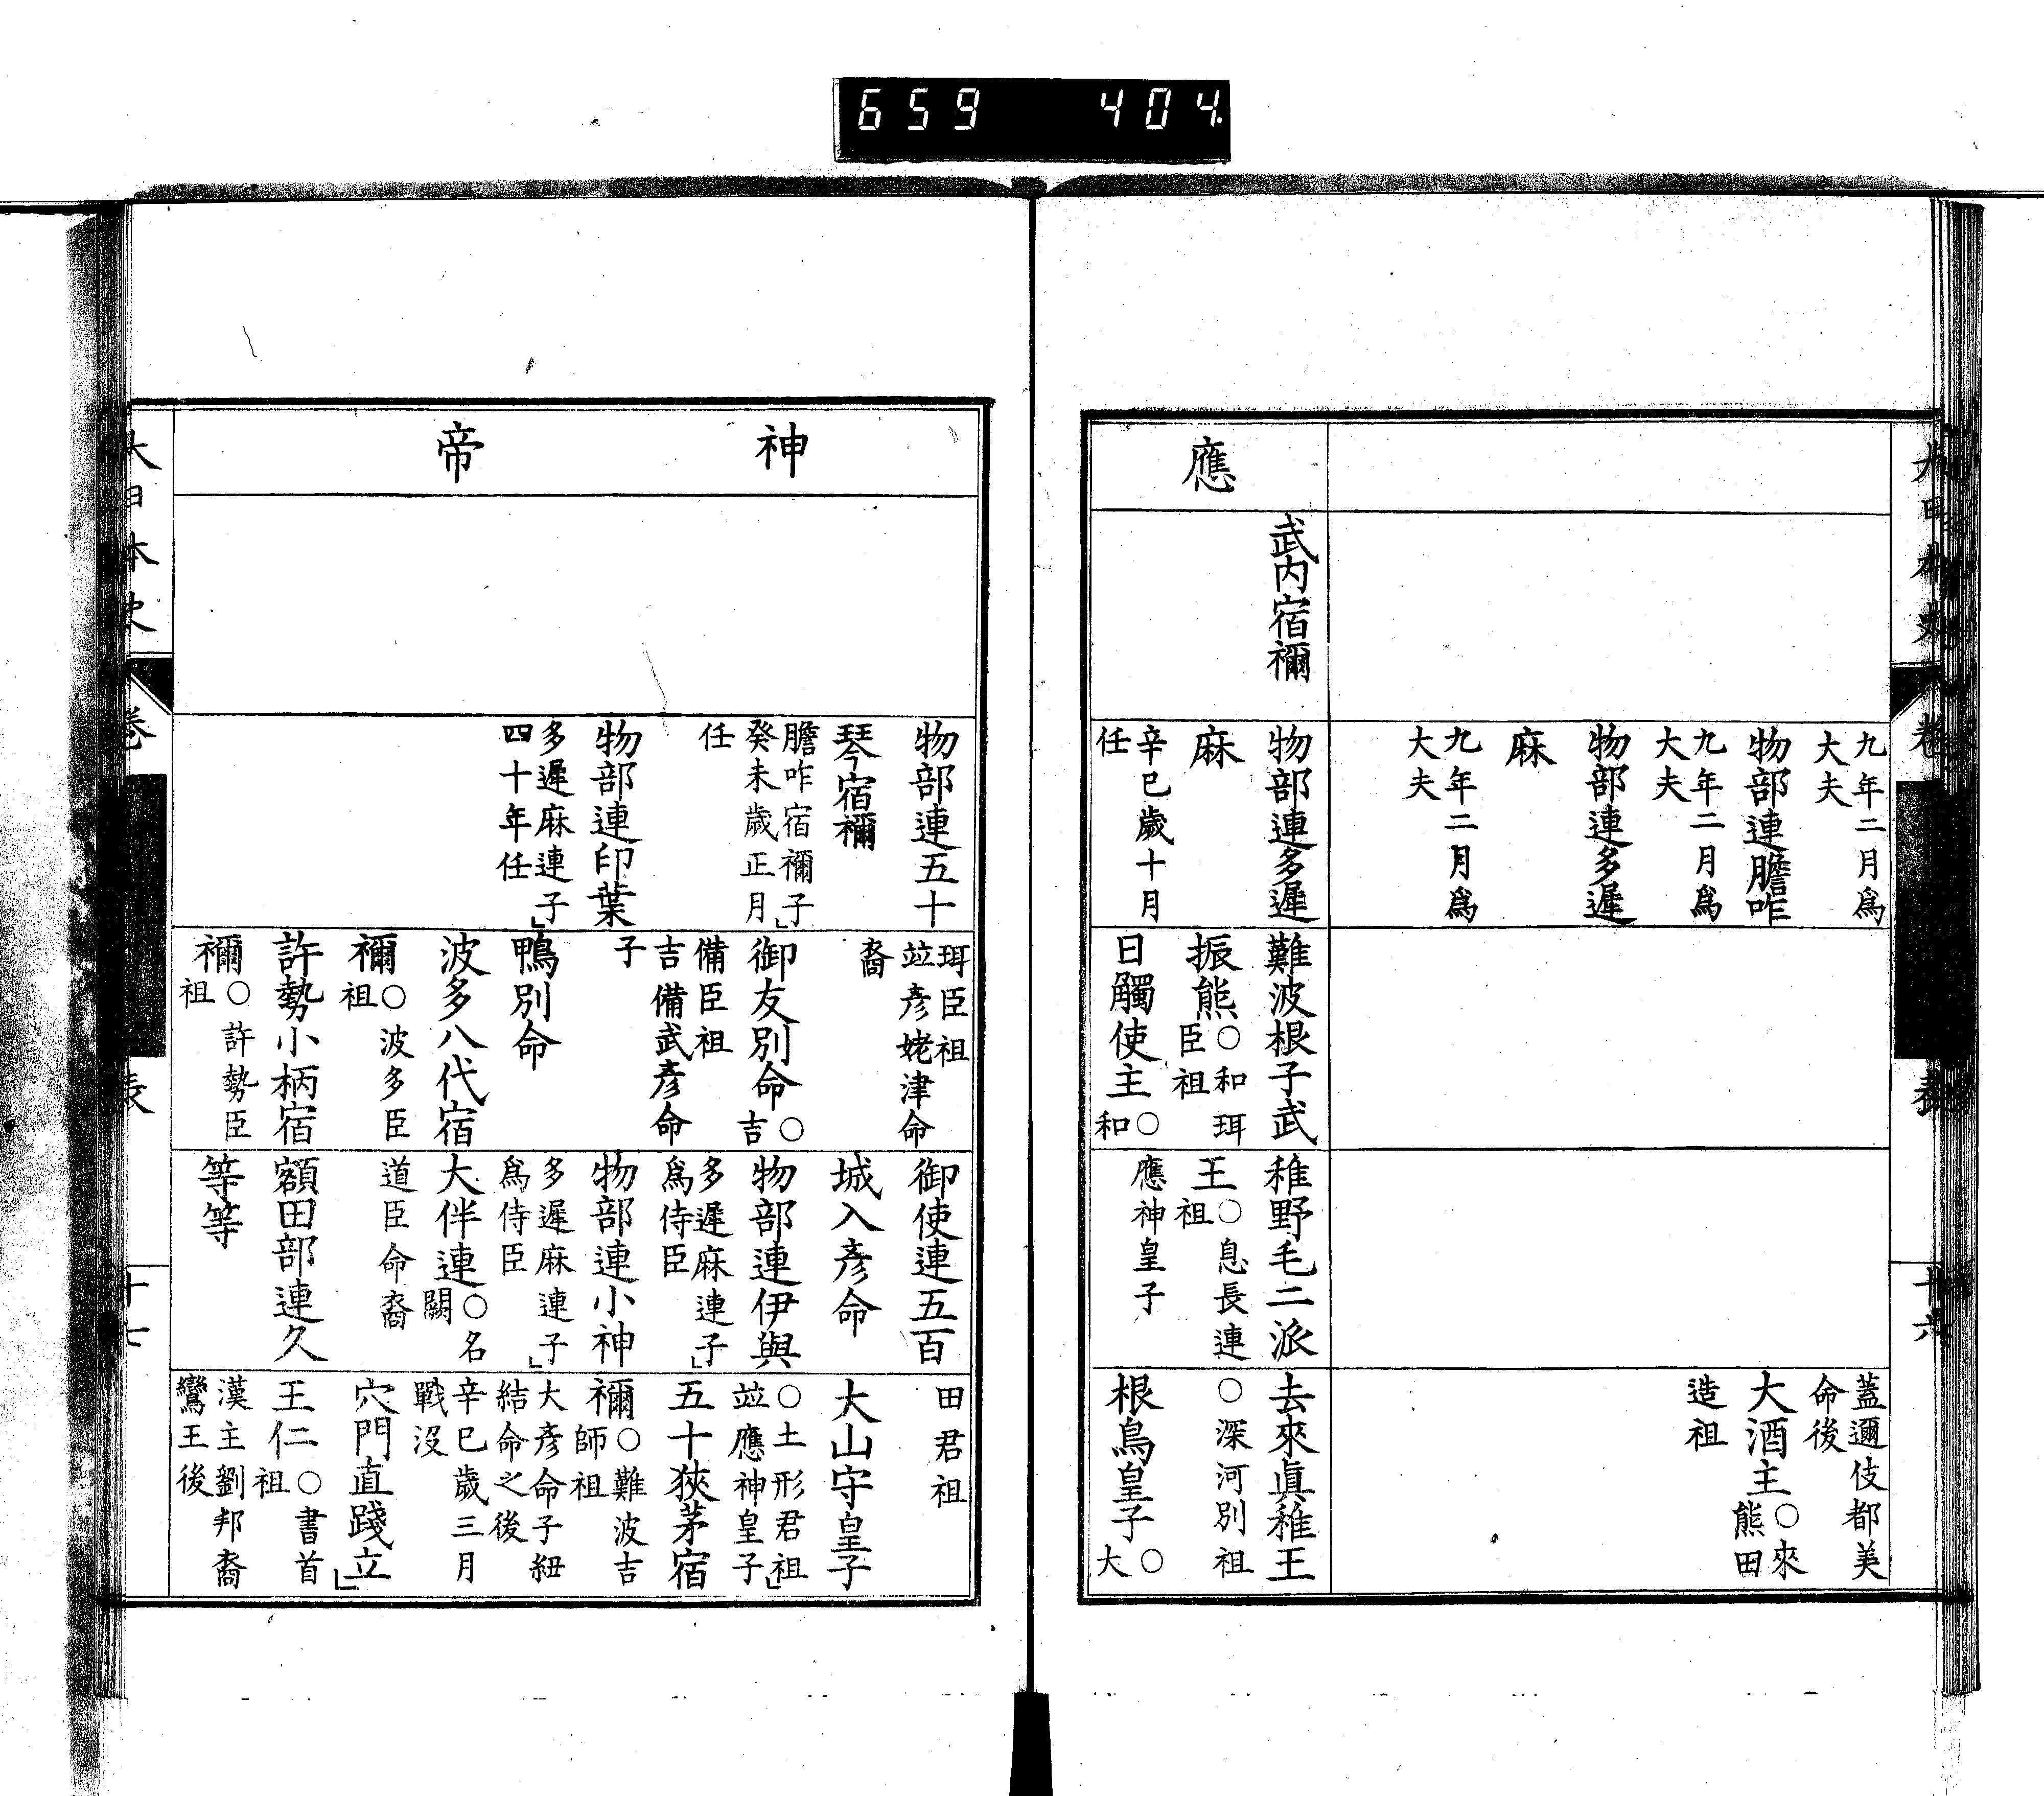 659 404
大日本史
卷
表
十六
九年二月爲
大夫
物部連膽咋
九年二月爲
大夫
物部連多遲
麻
九年二月爲
大夫
蓋邇伎都美
命後
大酒主○來
熊田
造祖
應
武内宿禰
物部連多遲
麻
辛巳歲十月
任
難波根子武
振熊○和珥
臣祖
日觸使主○
和
稚野毛二派
王○息長連
祖
應神皇子
去來眞稚王
○深河別祖
根鳥皇子○
大
神
帝
物部連五十
琴宿禰
膽咋宿禰子」
癸未歲正月
任
物部連印葉
多遲麻連子」
四十年任
珥臣祖
竝彥姥津命
裔
御友別命○
吉
備臣祖
吉備武彥命
子
鴨別命
波多八代宿
禰○波多臣
祖
許勢小柄宿
禰○許勢臣
祖
御使連五百
城入彥命
物部連伊與
多遲麻連子」
爲侍臣
物部連小神
多遲麻連子」
爲侍臣
大伴連○名
闕
道臣命裔
額田部連久
等等
田君祖
大山守皇子
○土形君祖」
竝應神皇子
五十狹茅宿
禰○難波吉
師祖
大彥命子紐
結命之後
辛巳歲三月
戰沒
穴門直踐立」
王仁○書首
祖
漢主劉邦裔
鸞王後
大日本史
卷
表
十七